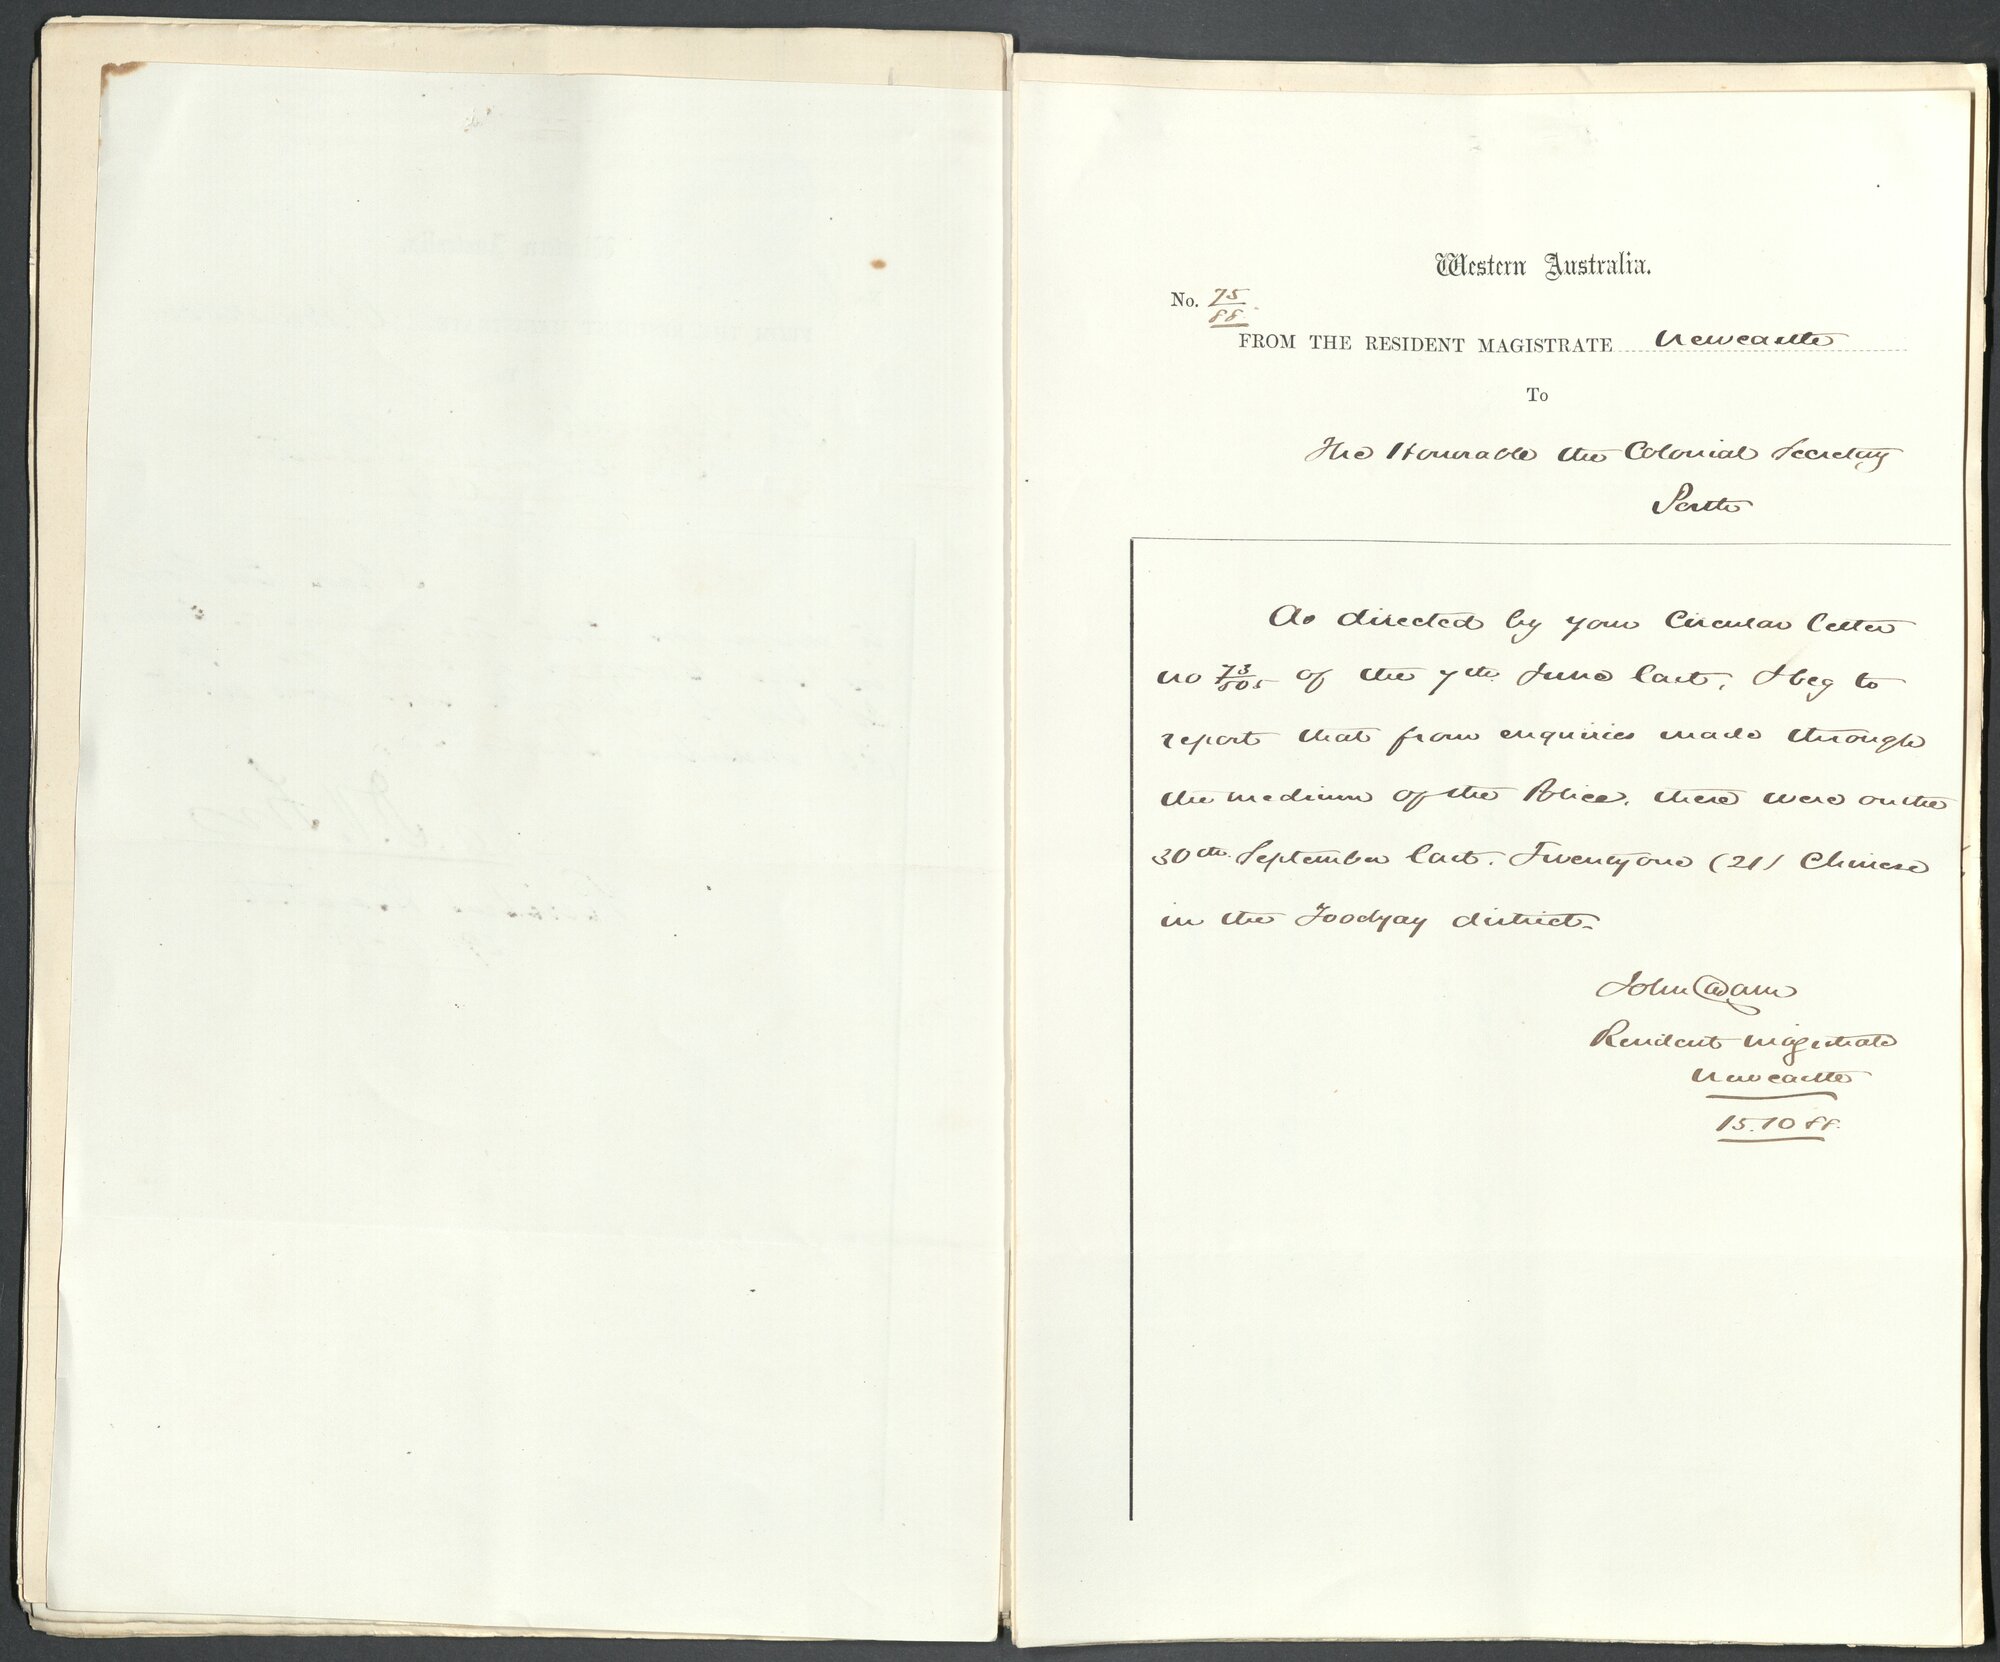 Western Australia.
No. 75/88.
FROM THE RESIDENT MAGISTRATE Newcastle
To
The Honorable the Colonial Secretary
Perth
As directed by your Circular letter
no 73/505 of the 7th June last, I beg to
report that from enquiries made through
the medium of the Police, there were on the
30th September last. Twenty one (21) Chinese
in the Toodyay district.
John Adam
Resident Magistrate
Newcastle
15.10 88.